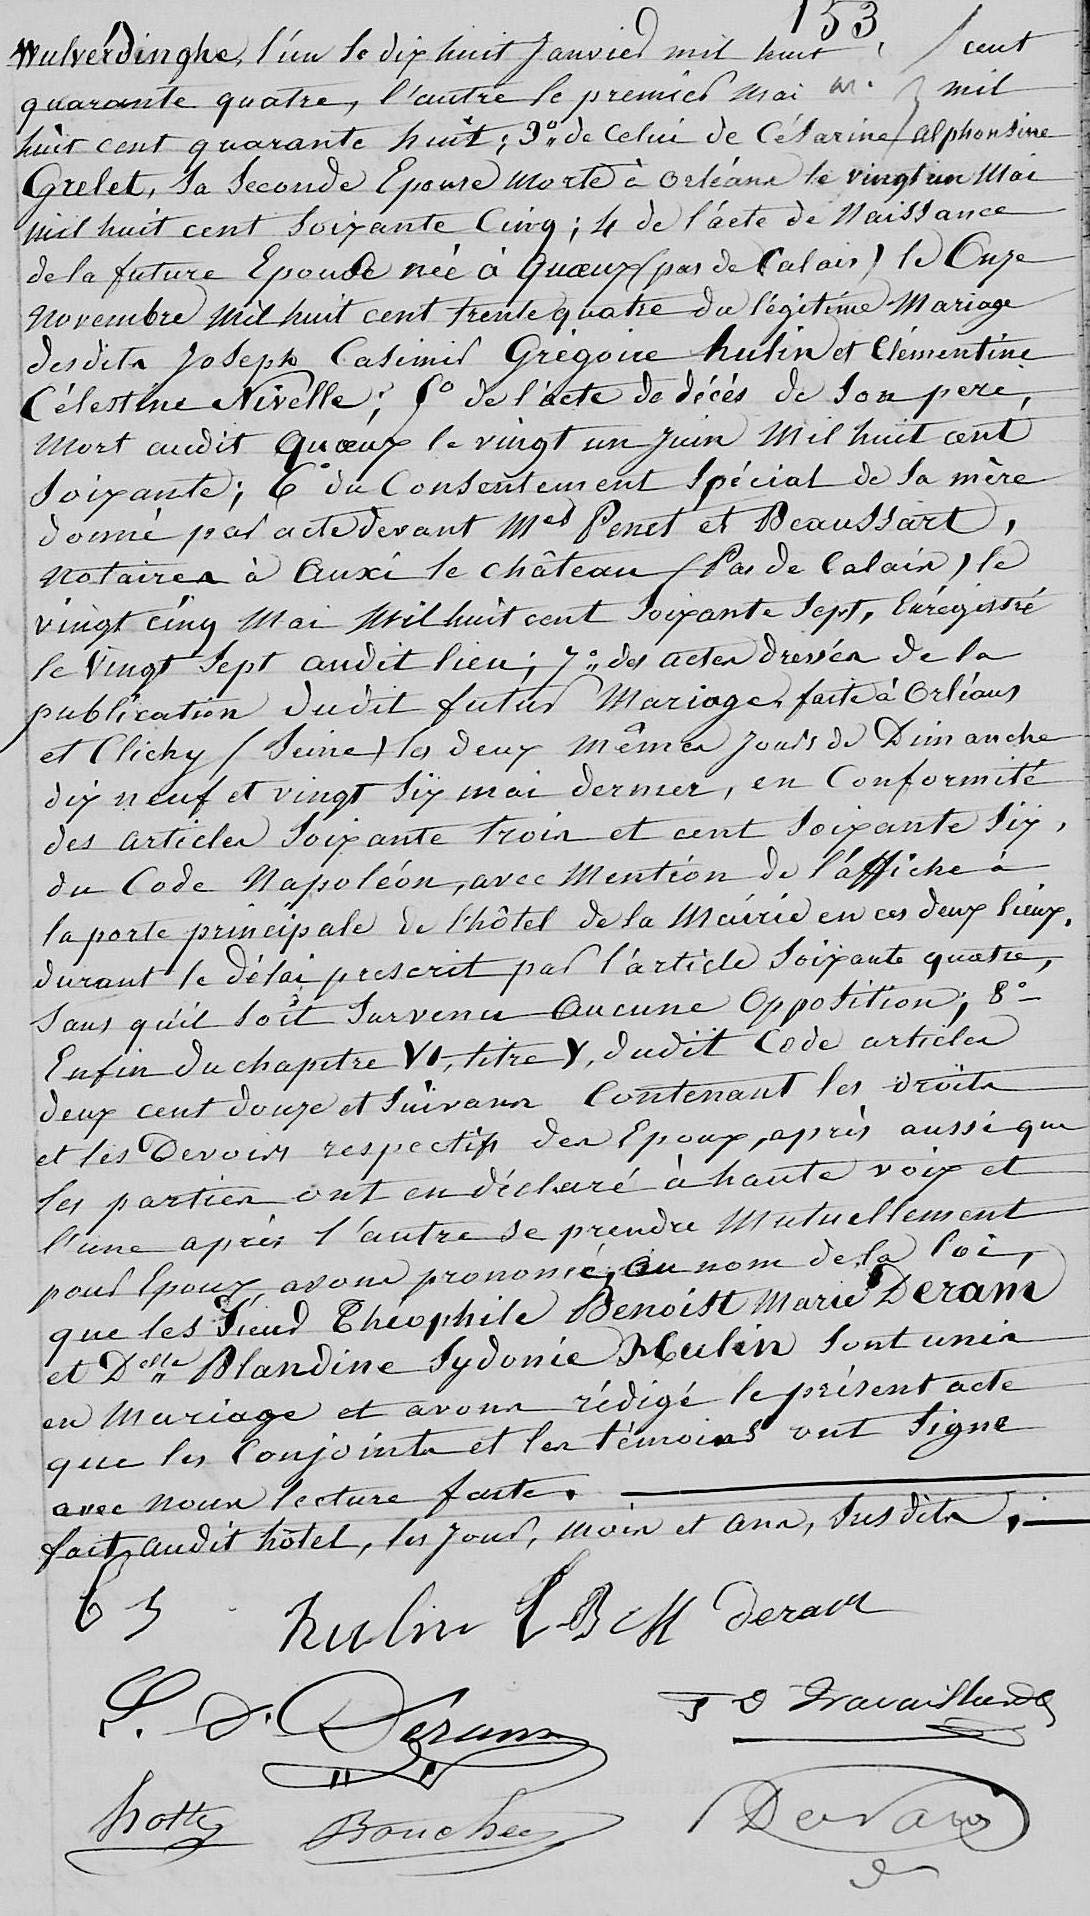 153
Wulverdinghe, l'un le dix huit Janvier mil huit / cent
quarante quatre, l'autre le premier Mai mil
huit cent quarante huit ; 3° de celui de Césarine Alphonsine
Grelet, Sa Seconde Epouse Morte à Orléans le vingt un Mai
mil huit cent Soixante Cinq ; 4 de l'acte de Naissance
de la future Epouse née à Quœux (pas de Calais) le Onze
Novembre Mil huit cent trente quatre du légitime Mariage
desdits Joseph Casimir Grégoire hulin et Clémentine
Célestine Nivelle ; 5° de l'acte de décés de Son pere,
Mort audit Quœux le vingt un Juin Mil huit cent
Soixante ; 6° du Consentement Spécial de Sa mère
donné par acte devant Mes Penet et Beaussart,
Notaires à Auxi le château (Pas de Calais) le
vingt cinq Mai Mil huit cent Soixante Sept, Enregistré
le Vingt Sept audit lieu ; 7° des actes dressés de la
publication dudit futur Mariage, faite à Orléans
et Clichy (Seine) les deux Mêmes Jours de Dimanche
dix neuf et vingt Six mai dernier, en Conformité
des articles Soixante trois et cent Soixante Six,
du Code Napoléon, avec Mention de l'affiche à
la porte principale de l'hôtel de la Mairie en ces deux lieux,
durant le délai prescrit par l'article Soixante quatre,
Sans qu'il Soit Survenu Aucune Opposition ; 8°
Enfin du chapitre VI, titre V, dudit Code articles
deux cent douze et Suivans Contenant les droits
et les Devoirs respectifs des Epoux, après aussi que
les parties ont eu déclaré à haute voix et
l'une après l'autre se prendre Mutuellement
pour Epoux, avons prononcé, au nom de la loi,
que les Sieur Théophile Benoist Marie Deram
et Delle Blandine Sydonie Hulin Sont unis
en Mariage et avons rédigé le présent acte
que les Conjoints et les témoins ont Signé
avec nous lecture faite.
fait audit hôtel, les Jour, Mois et an, Susdits.
hulin T B M deram
L. D. Deram T D Travaillard
hotte Boucher